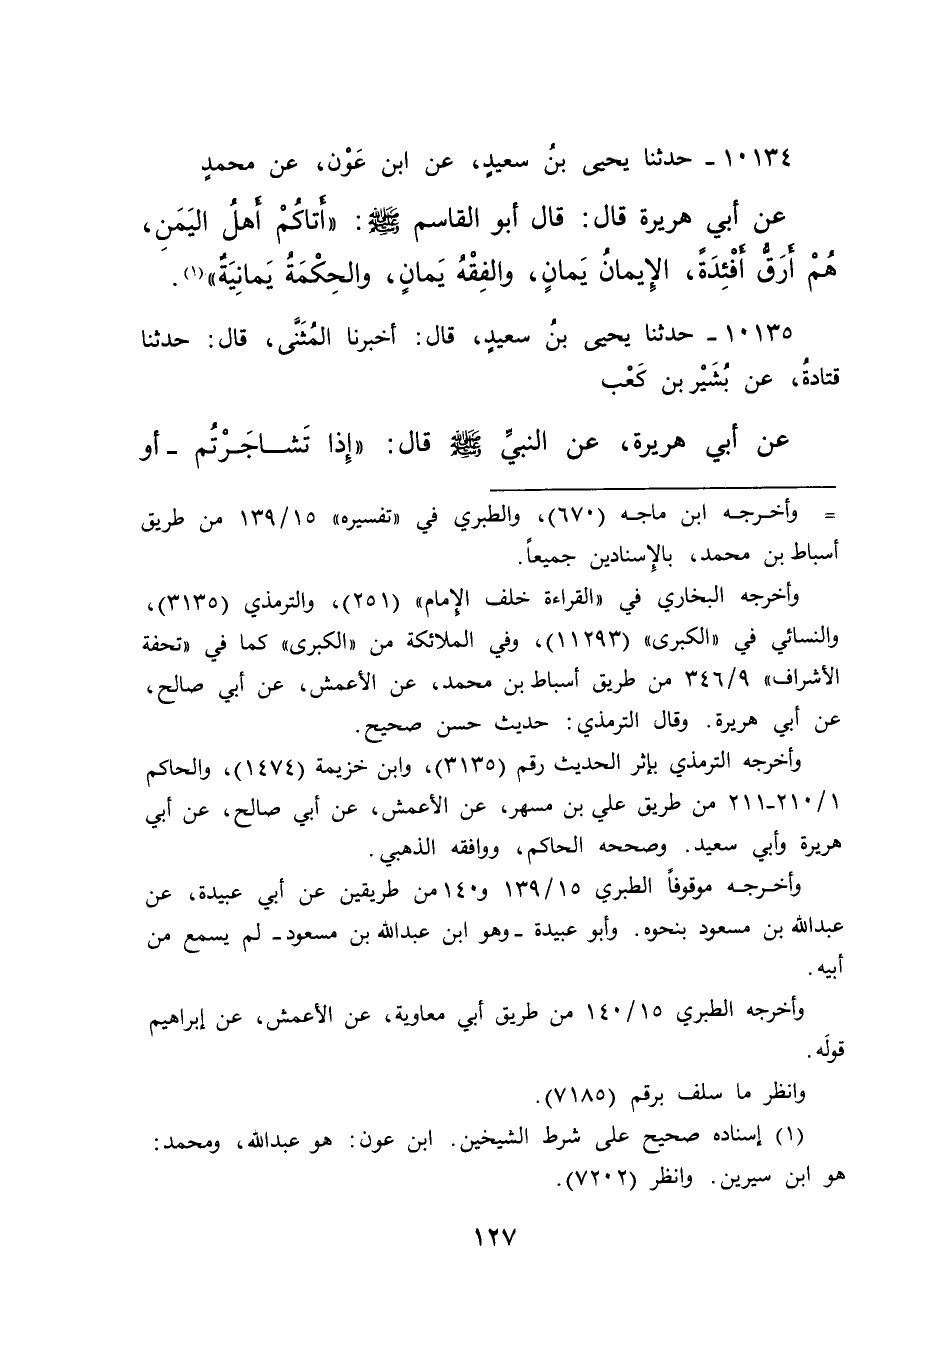 ١٠١٣٤ ـ حدثنا يحيى بنُ سعيدٍ، عن ابن عَوْن، عن محمدٍ
عن أبي هريرة قال: قال أبو القاسم ﷺ: «أَتاكُمْ أَهلُ اليَمَنِ،
هُمْ أَرَقُّ أَفْئِدَةً، الإِيمانُ يَمانٍ، والفِقْهُ يَمانٍ، والحِكْمَةُ يَمانِيَةٌ»(١).
١٠١٣٥ ـ حدثنا يحيى بنُ سعيدٍ، قال: أخبرنا المُثَنَّى، قال: حدثنا
قتادةُ، عن بُشَيْر بن كَعْب
عن أبي هريرة، عن النبيِّ ﷺ قال: «إِذا تَشاجَرْتُم ـ أو
= وأخرجه ابن ماجه (٦٧٠)، والطبري في «تفسيره» ١٣٩/١٥ من طريق
أسباط بن محمد، بالإسنادين جميعاً.
وأخرجه البخاري في «القراءة خلف الإمام» (٢٥١)، والترمذي (٣١٣٥)،
والنسائي في «الكبرى» (١١٢٩٣)، وفي الملائكة من «الكبرى» كما في «تحفة
الأشراف» ٣٤٦/٩ من طريق أسباط بن محمد، عن الأعمش، عن أبي صالح،
عن أبي هريرة. وقال الترمذي: حديث حسن صحيح.
وأخرجه الترمذي بإثر الحديث رقم (٣١٣٥)، وابن خزيمة (١٤٧٤)، والحاكم
٢١٠/١-٢١١ من طريق علي بن مسهر، عن الأعمش، عن أبي صالح، عن أبي
هريرة وأبي سعيد. وصححه الحاكم، ووافقه الذهبي.
وأخرجه موقوفاً الطبري ١٣٩/١٥ و١٤٠ من طريقين عن أبي عبيدة، عن
عبدالله بن مسعود بنحوه. وأبو عبيدة ـ وهو ابن عبدالله بن مسعود ـ لم يسمع من
أبيه.
وأخرجه الطبري ١٤٠/١٥ من طريق أبي معاوية، عن الأعمش، عن إبراهيم
قولَه.
وانظر ما سلف برقم (٧١٨٥).
(١) إسناده صحيح على شرط الشيخين. ابن عون: هو عبدالله، ومحمد:
هو ابن سيرين. وانظر (٧٢٠٢).
١٢٧